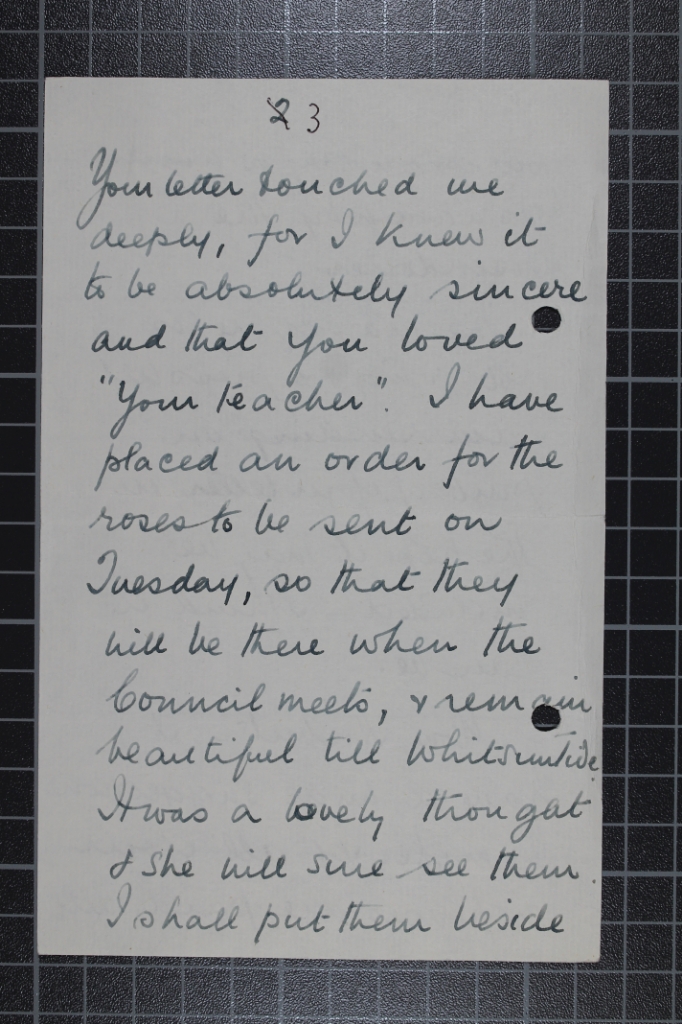 2 3
Your letter touched me
deeply, for I knew it
to be absolutely sincere
and that you loved
"Your teacher". I have
placed an order for the
roses to be sent on
Tuesday, so that they
will be there when the
Council meets, & remain
beautiful till Whitsuntide.
It was a lovely thought
& she will sure see them.
I shall put them beside